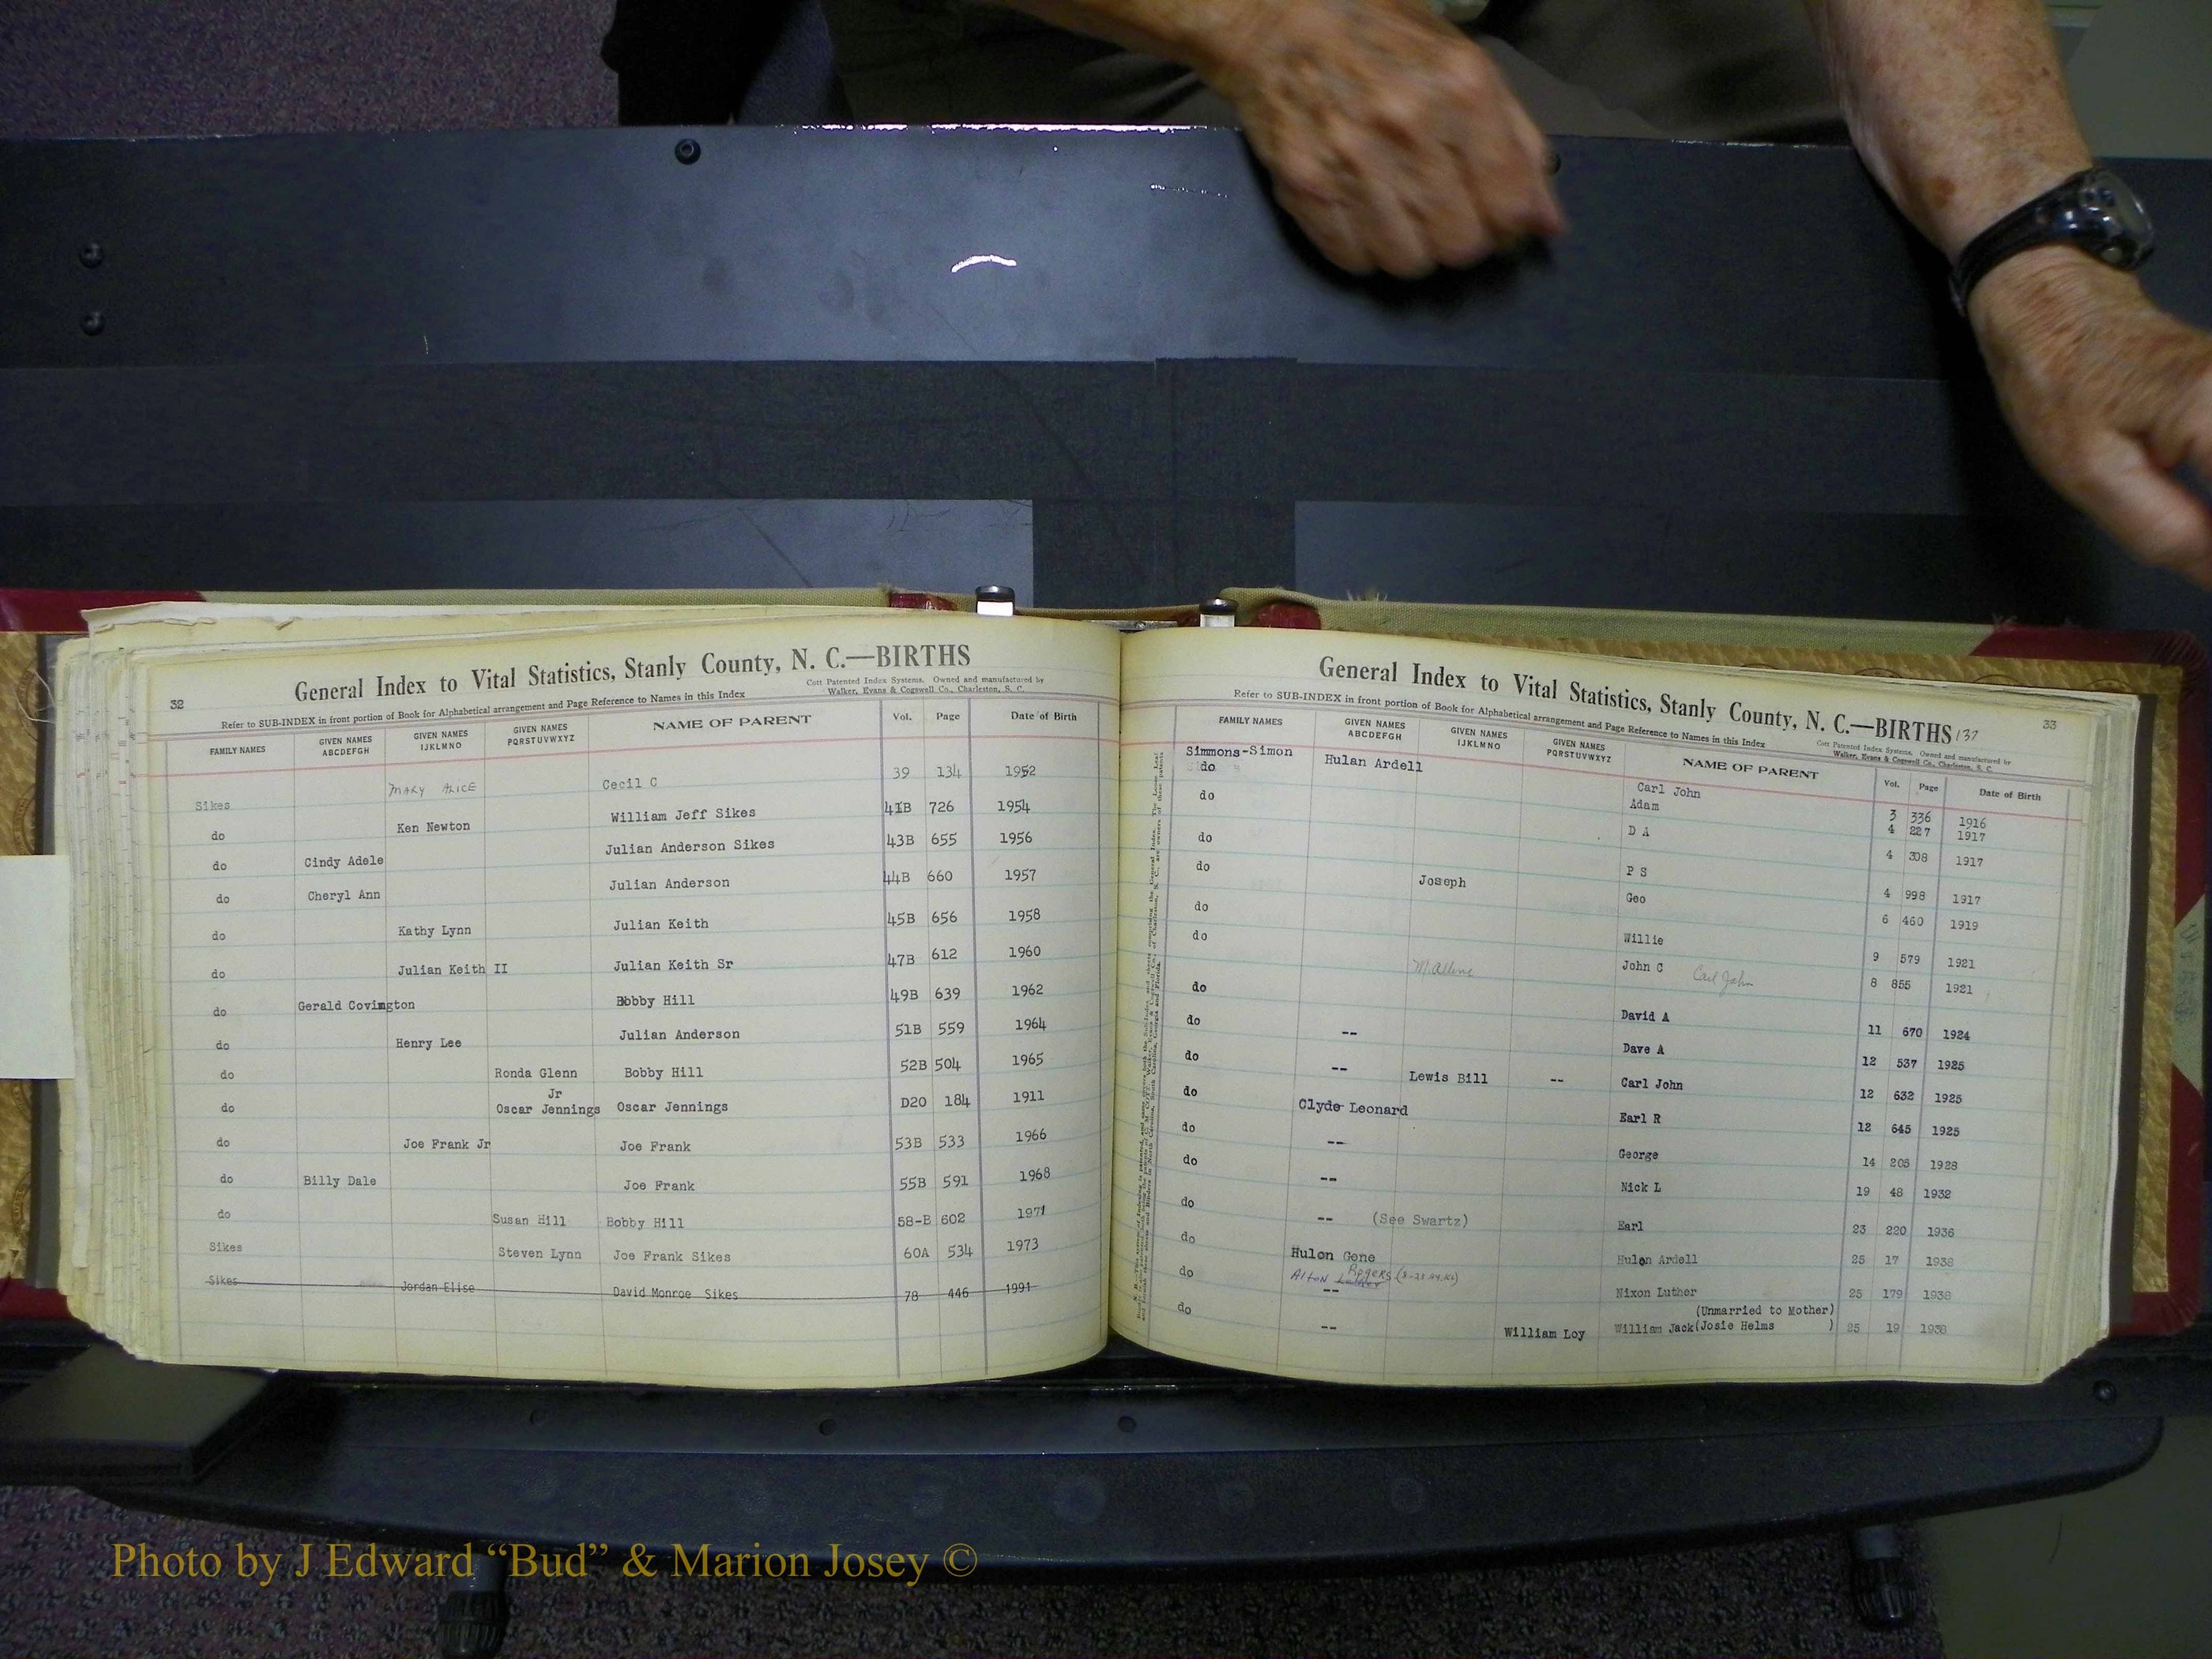 32
General Index to Vital Statistics, Stanly County, N. C.—BIRTHS
Cott Patented Index Systems. Owned and manufactured by
Walker, Evans & Cogswell Co., Charleston, S. C.
Refer to SUB-INDEX in front portion of Book for Alphabetical arrangement and Page Reference to Names in this Index
FAMILY NAMES GIVEN NAMES ABCDEFGH GIVEN NAMES IJKLMNO GIVEN NAMES PQRSTUVWXYZ NAME OF PARENT Vol. Page Date of Birth
Sikes MARY ALICE Cecil C 39 134 1952
do Ken Newton William Jeff Sikes 41B 726 1954
do Cindy Adele Julian Anderson Sikes 43B 655 1956
do Cheryl Ann Julian Anderson 44B 660 1957
do Kathy Lynn Julian Keith 45B 656 1958
do Julian Keith II Julian Keith Sr 47B 612 1960
do Gerald Covington Bobby Hill 49B 639 1962
do Henry Lee Julian Anderson 51B 559 1964
do Ronda Glenn Bobby Hill 52B 504 1965
Jr
do Oscar Jennings Oscar Jennings D20 184 1911
do Joe Frank Jr Joe Frank 53B 533 1966
do Billy Dale Joe Frank 55B 591 1968
do Susan Hill Bobby Hill 58-B 602 1971
Sikes Steven Lynn Joe Frank Sikes 60A 534 1973
Sikes Jordan Elise David Monroe Sikes 78 446 1991
General Index to Vital Statistics, Stanly County, N. C.—BIRTHS 137
33
Refer to SUB-INDEX in front portion of Book for Alphabetical arrangement and Page Reference to Names in this Index
Cott Patented Index Systems. Owned and manufactured by
Walker, Evans & Cogswell Co., Charleston, S. C.
FAMILY NAMES GIVEN NAMES ABCDEFGH GIVEN NAMES IJKLMNO GIVEN NAMES PQRSTUVWXYZ NAME OF PARENT Vol. Page Date of Birth
Simmons-Simon Hulan Ardell Carl John 3 336 1916
do Adam 4 227 1917
do D A 4 308 1917
do P S 4 998 1917
do Joseph Geo 6 460 1919
do Willie 9 579 1921
do John C Carl John 8 855 1921
do David A 11 670 1924
do -- Dave A 12 537 1925
do -- Lewis Bill -- Carl John 12 632 1925
do Clyde Leonard Earl R 12 645 1925
do -- George 14 205 1928
do -- Nick L 19 48 1932
do -- (See Swartz) Earl 23 220 1936
do Hulon Gene Hulon Ardell 25 17 1938
Alton Rogers
do -- Nixon Luther 25 179 1938
(Unmarried to Mother)
do -- William Loy William Jack (Josie Helms ) 25 19 1938
Photo by J Edward “Bud” & Marion Josey ©